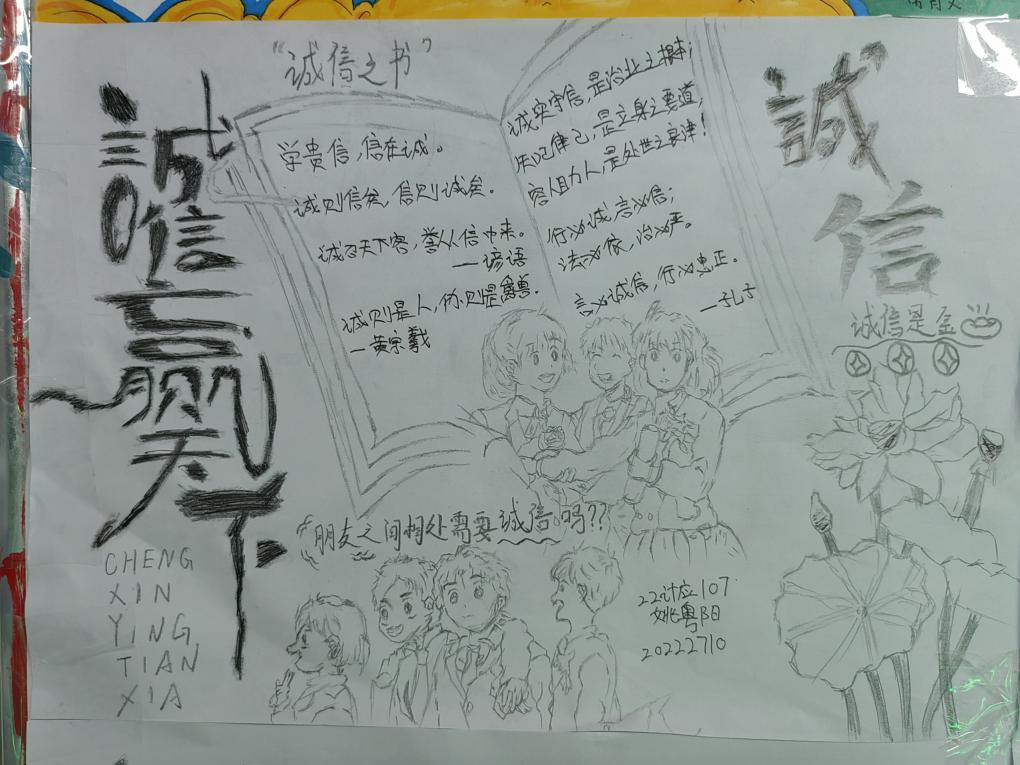 誠信赢天下
CHENG
XIN
YING
TIAN
XIA
“诚信之书”
学贵信，信在诚。
诚则信矣，信则诚矣。
诚召天下客，誉从信中来。
—谚语
诚则是人，伪则是禽兽。
—黄宗羲
诚实守信，是治业之根本；
律己，是立身之要道，
容人助人，是处世之要津！
行必诚言必信；
法必依，治必严。
言必诚信，行必忠正。
—孔子
誠信
诚信是金
“朋友之间相处需要诚信吗？？
22计应107
姚粤阳
20222710